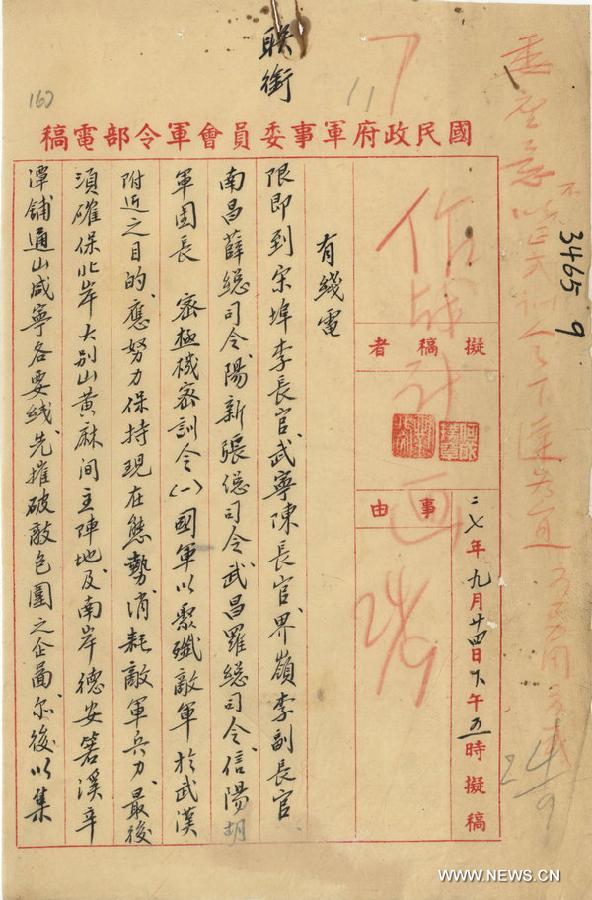 联銜
國民政府軍事委員會軍令部電稿
162
11
3465 9
作战计画
24/9
擬稿者
事由
二七年九月廿四日下午五時擬稿
24/9
有綫電
限即到宋埠李長官武寧陳長官界嶺李副長官
南昌薛總司令陽新張總司令武昌羅總司令信陽胡
軍團長 密極機密訓令(一)國軍以聚殲敵軍於武漢
附近之目的應努力保持現在態勢消耗敵軍兵力最後
須確保北岸大別山黃麻間主陣地及南岸德安箬溪辛
潭鋪通山咸寧各要线先摧破敵包圍之企畐尔後以集
WWW.NEWS.CN